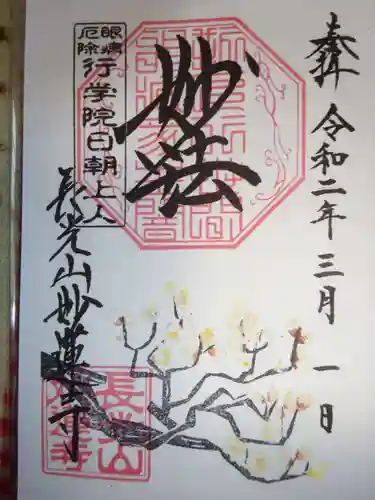 奉拝
令和二年三月一日
妙法
眼病
厄除
行学院日朝上人
長光山妙蓮寺
長光山
妙蓮寺